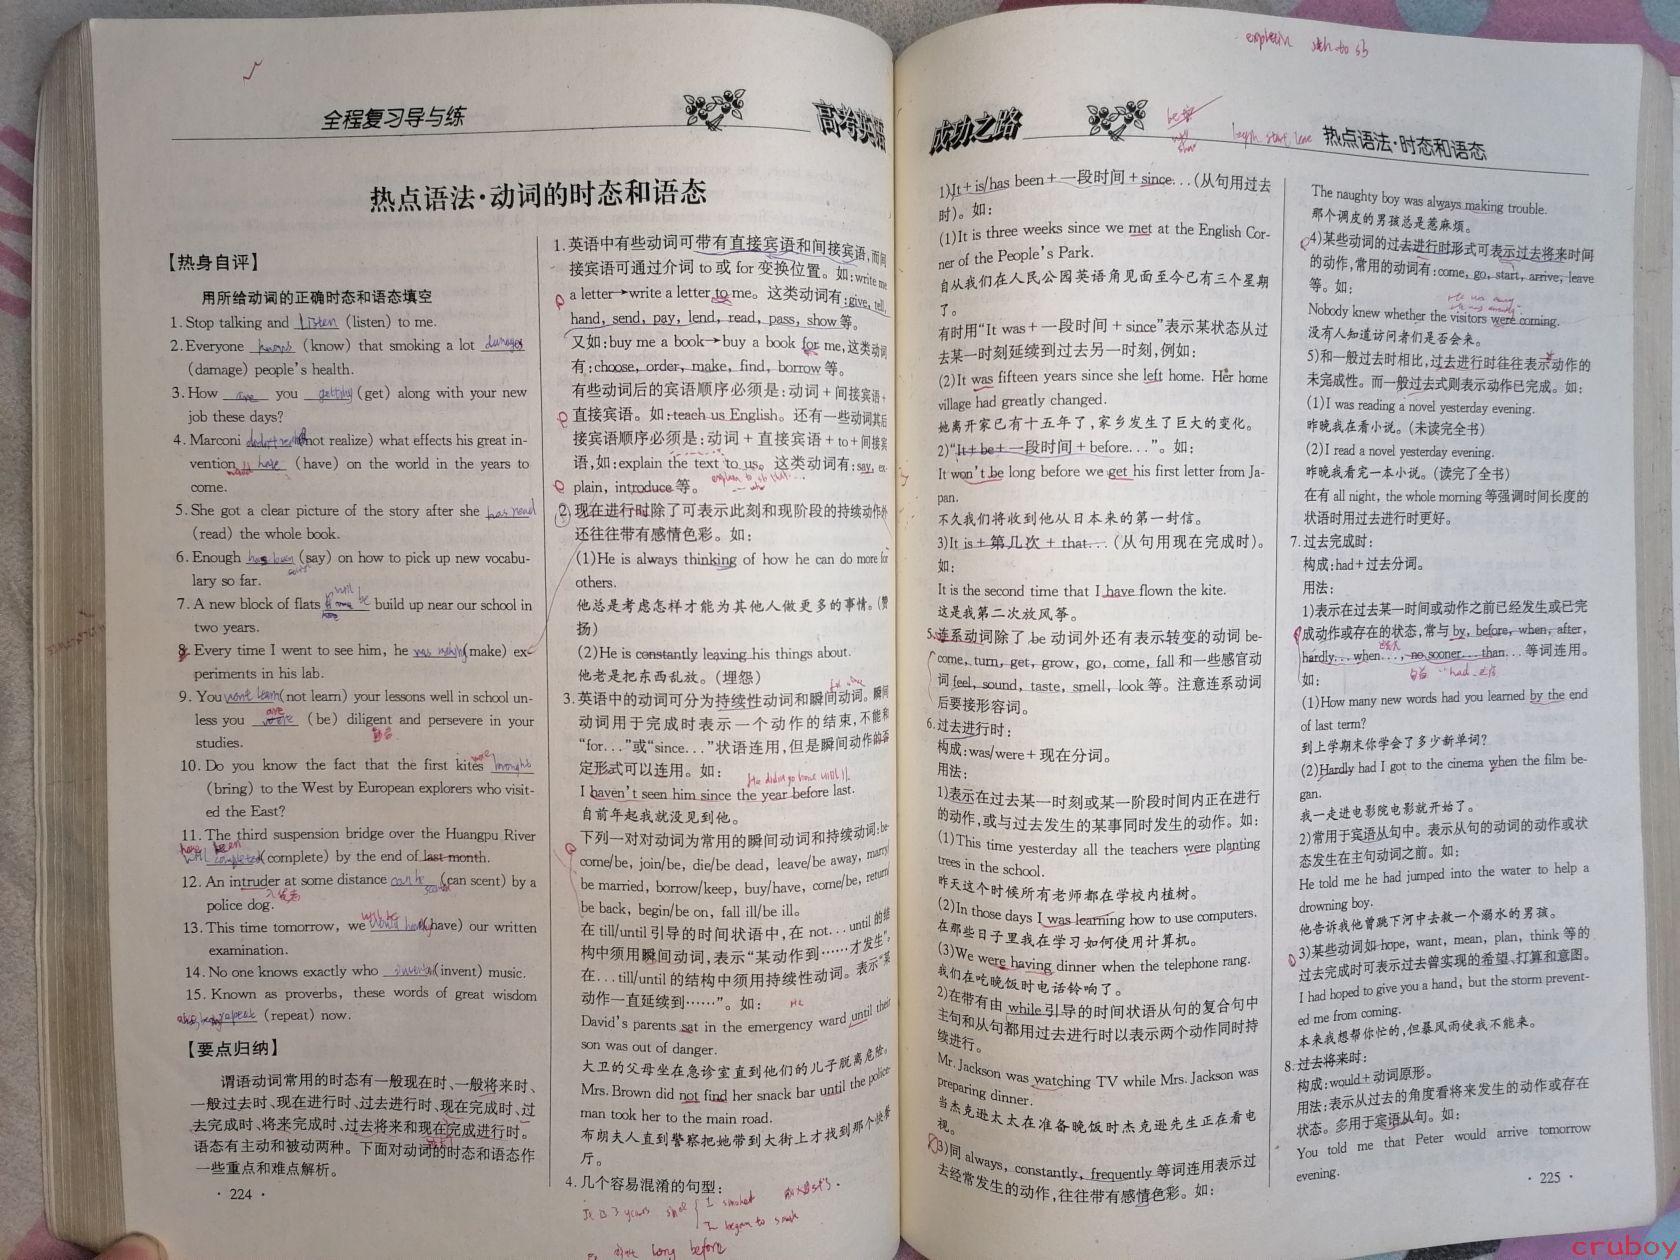 全程复习导与练
高考英语
热点语法·动词的时态和语态
【热身自评】
用所给动词的正确时态和语态填空
1. Stop talking and listen (listen) to me.
2. Everyone knows (know) that smoking a lot damages
(damage) people's health.
3. How are you getting (get) along with your new
job these days?
4. Marconi (not realize) what effects his great in-
vention have (have) on the world in the years to
come.
5. She got a clear picture of the story after she has read
(read) the whole book.
6. Enough has been (say) on how to pick up new vocabu-
lary so far.
7. A new block of flats will be build up near our school in
two years.
8. Every time I went to see him, he was making (make) ex-
periments in his lab.
9. You won't learn (not learn) your lessons well in school un-
less you are (be) diligent and persevere in your
studies.
10. Do you know the fact that the first kites were brought
(bring) to the West by European explorers who visit-
ed the East?
11. The third suspension bridge over the Huangpu River
completed (complete) by the end of last month.
12. An intruder at some distance can be (can scent) by a
police dog.
13. This time tomorrow, we will be (have) our written
examination.
14. No one knows exactly who invented (invent) music.
15. Known as proverbs, these words of great wisdom
repeat (repeat) now.
【要点归纳】
谓语动词常用的时态有一般现在时、一般将来时、
一般过去时、现在进行时、过去进行时、现在完成时、过
去完成时、将来完成时、过去将来和现在完成进行时。
语态有主动和被动两种。下面对动词的时态和语态作
一些重点和难点解析。
· 224 ·
1. 英语中有些动词可带有直接宾语和间接宾语,而间
接宾语可通过介词 to 或 for 变换位置。如:write me
a letter→write a letter to me。这类动词有:give, tell,
hand, send, pay, lend, read, pass, show等。
又如:buy me a book→buy a book for me,这类动词
有:choose, order, make, find, borrow 等。
有些动词后的宾语顺序必须是:动词+间接宾语+
直接宾语。如:teach us English。还有一些动词其后
接宾语顺序必须是:动词+直接宾语+to+间接宾
语,如:explain the text to us。这类动词有:say, ex-
plain, introduce 等。
2. 现在进行时除了可表示此刻和现阶段的持续动作外
还往往带有感情色彩。如:
(1)He is always thinking of how he can do more for
others.
他总是考虑怎样才能为其他人做更多的事情。(赞
扬)
(2)He is constantly leaving his things about.
他老是把东西乱放。(埋怨)
3. 英语中的动词可分为持续性动词和瞬间动词。瞬间
动词用于完成时表示一个动作的结束,不能和
“for...”或“since...”状语连用,但是瞬间动作的否
定形式可以连用。如:
I haven't seen him since the year before last.
自前年起我就没见到他。
下列一对对动词为常用的瞬间动词和持续动词:be-
come/be, join/be, die/be dead, leave/be away, marry/
be married, borrow/keep, buy/have, come/be, return/
be back, begin/be on, fall ill/be ill。
在 till/until 引导的时间状语中,在 not... until 的结
构中须用瞬间动词,表示“某动作到……才发生”。
在...till/until 的结构中须用持续性动词。表示“某
动作一直延续到……”。如:
He
David's parents sat in the emergency ward until their
son was out of danger.
大卫的父母坐在急诊室直到他们的儿子脱离危险。
Mrs. Brown did not find her snack bar until the police-
man took her to the main road.
布朗夫人直到警察把她带到大街上才找到那个快餐
厅。
4. 几个容易混淆的句型:
It is 3 years since I smoked
I began to smoke
long before
explain sth to sb
成功之路
热点语法·时态和语态
1)It+is/has been+一段时间+since...(从句用过去
时)。如:
(1)It is three weeks since we met at the English Cor-
ner of the People's Park.
自从我们在人民公园英语角见面至今已有三个星期
了。
有时用“It was+一段时间+since”表示某状态从过
去某一时刻延续到过去另一时刻,例如:
(2)It was fifteen years since she left home. Her home
village had greatly changed.
她离开家已有十五年了,家乡发生了巨大的变化。
2)“It+be+一段时间+before...”。如:
It won't be long before we get his first letter from Ja-
pan.
不久我们将收到他从日本来的第一封信。
3)It is+第几次+that...(从句用现在完成时)。
如:
It is the second time that I have flown the kite.
这是我第二次放风筝。
5. 连系动词除了 be 动词外还有表示转变的动词 be-
come, turn, get, grow, go, come, fall 和一些感官动
词 feel, sound, taste, smell, look 等。注意连系动词
后要接形容词。
6. 过去进行时:
构成:was/were+现在分词。
用法:
1)表示在过去某一时刻或某一阶段时间内正在进行
的动作,或与过去发生的某事同时发生的动作。如:
(1)This time yesterday all the teachers were planting
trees in the school.
昨天这个时候所有老师都在学校内植树。
(2)In those days I was learning how to use computers.
在那些日子里我在学习如何使用计算机。
(3)We were having dinner when the telephone rang.
我们在吃晚饭时电话铃响了。
2)在带有由 while 引导的时间状语从句的复合句中
主句和从句都用过去进行时以表示两个动作同时持
续进行。
Mr. Jackson was watching TV while Mrs. Jackson was
preparing dinner.
当杰克逊太太在准备晚饭时杰克逊先生正在看电
视。
3)同 always, constantly, frequently 等词连用表示过
去经常发生的动作,往往带有感情色彩。如:
The naughty boy was always making trouble.
那个调皮的男孩总是惹麻烦。
4)某些动词的过去进行时形式可表示过去将来时间
的动作,常用的动词有:come, go, start, arrive, leave
等。如:
Nobody knew whether the visitors were coming.
没有人知道访问者们是否会来。
5)和一般过去时相比,过去进行时往往表示动作的
未完成性。而一般过去式则表示动作已完成。如:
(1)I was reading a novel yesterday evening.
昨晚我在看小说。(未读完全书)
(2)I read a novel yesterday evening.
昨晚我看完一本小说。(读完了全书)
在有 all night, the whole morning 等强调时间长度的
状语时用过去进行时更好。
7. 过去完成时:
构成:had+过去分词。
用法:
1)表示在过去某一时间或动作之前已经发生或已完
成动作或存在的状态,常与 by, before, when, after,
hardly... when..., no sooner... than...等词连用。
如:
(1)How many new words had you learned by the end
of last term?
到上学期末你学会了多少新单词?
(2)Hardly had I got to the cinema when the film be-
gan.
我一走进电影院电影就开始了。
2)常用于宾语从句中。表示从句的动词的动作或状
态发生在主句动词之前。如:
He told me he had jumped into the water to help a
drowning boy.
他告诉我他曾跳下河中去救一个溺水的男孩。
3)某些动词如 hope, want, mean, plan, think 等的
过去完成时可表示过去曾实现的希望、打算和意图。
I had hoped to give you a hand, but the storm prevent-
ed me from coming.
本来我想帮你忙的,但暴风雨使我不能来。
8. 过去将来时:
构成:would+动词原形。
用法:表示从过去的角度看将来发生的动作或存在
状态。多用于宾语从句。如:
You told me that Peter would arrive tomorrow
evening.
· 225 ·
cruboy